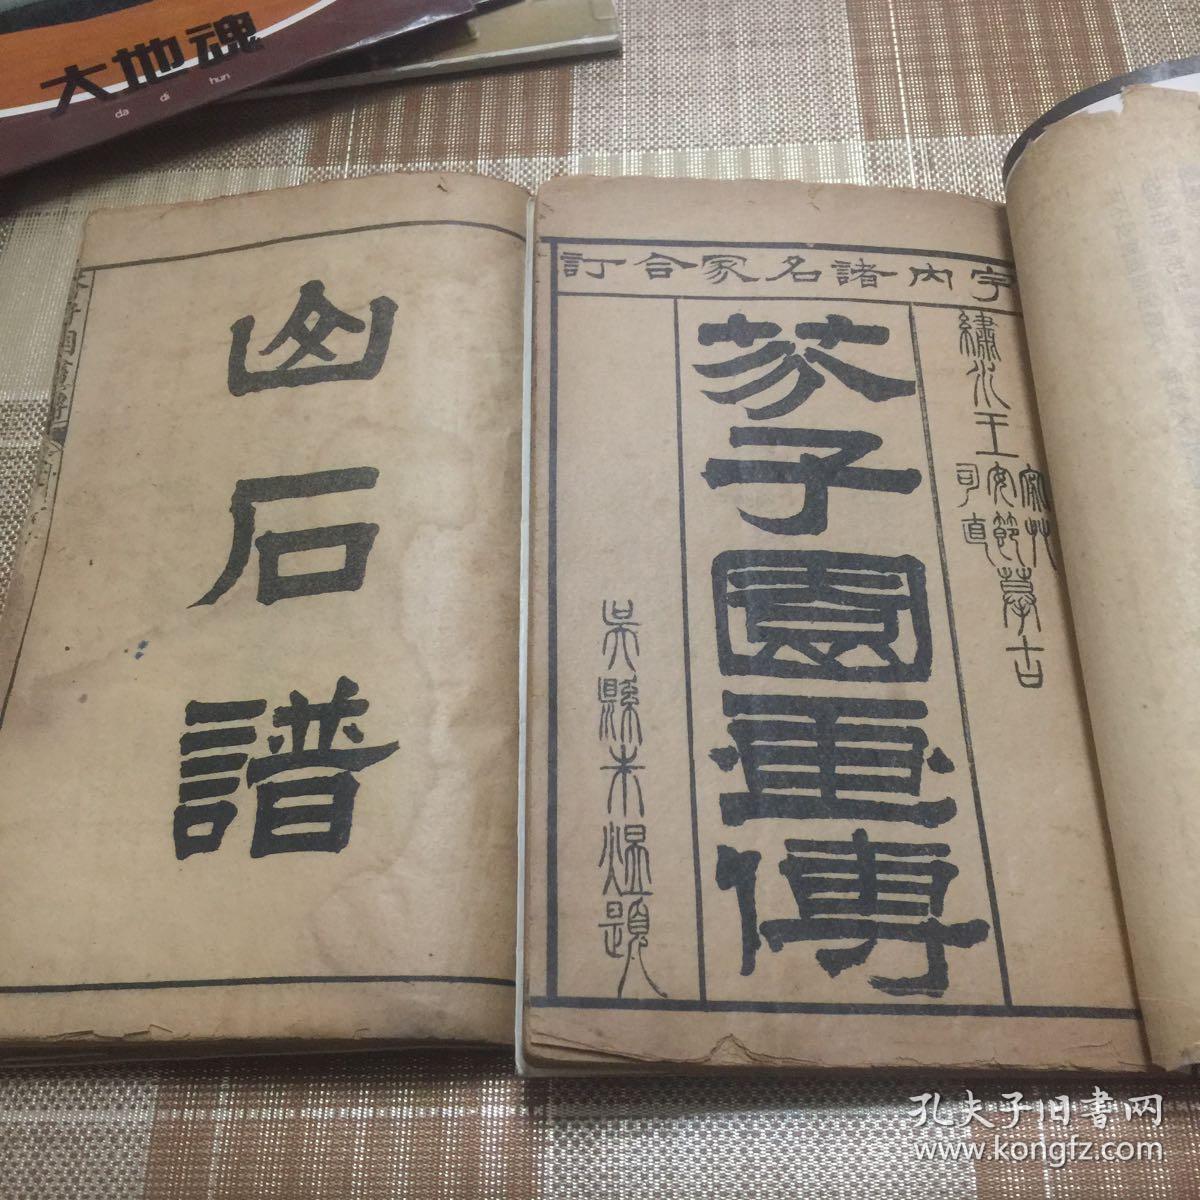 大地魂
da di hun
宇內諸名家合訂
繡水王
宓草
安節
司直
摹古
芥子園畫傳
吳縣朱題
山石譜
子園畫傳
孔夫子旧書网
www.kongfz.com